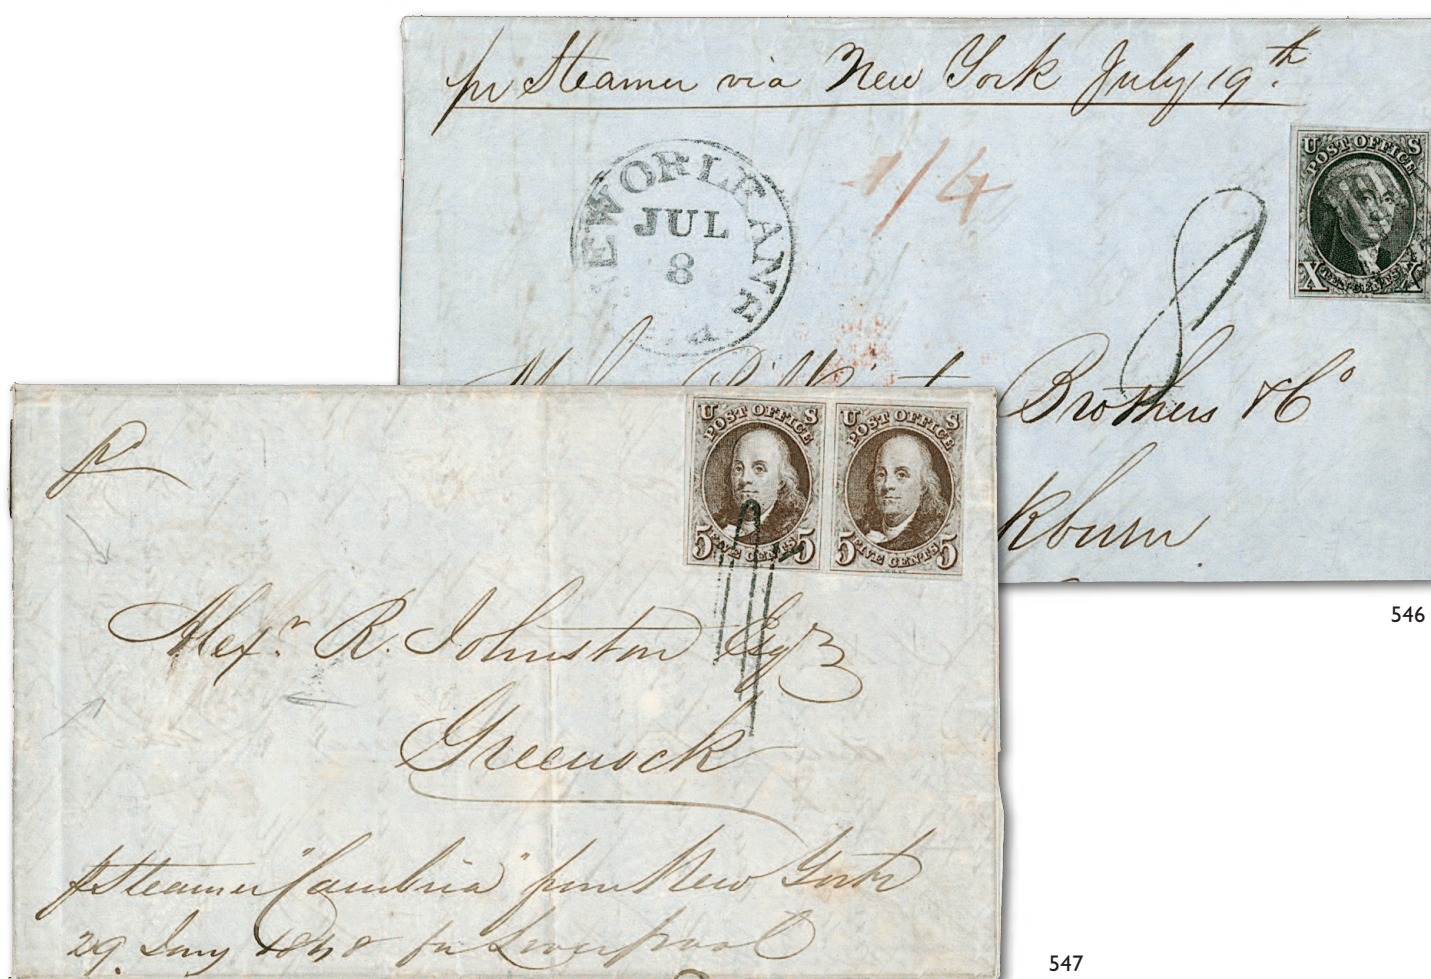 pr Steamer via New York July 19th
1/4
NEW ORLEANS LA
JUL
8
8
U S
POST OFFICE
X TEN CENTS X
Brothers & Co
kburn
546
p
U S
POST OFFICE
5 FIVE CENTS 5
U S
POST OFFICE
5 FIVE CENTS 5
Alexr. R. Johnston Esqr
Greenock
p Steamer "Cambria" from New York
29 Jany 1848 for Liverpool
547